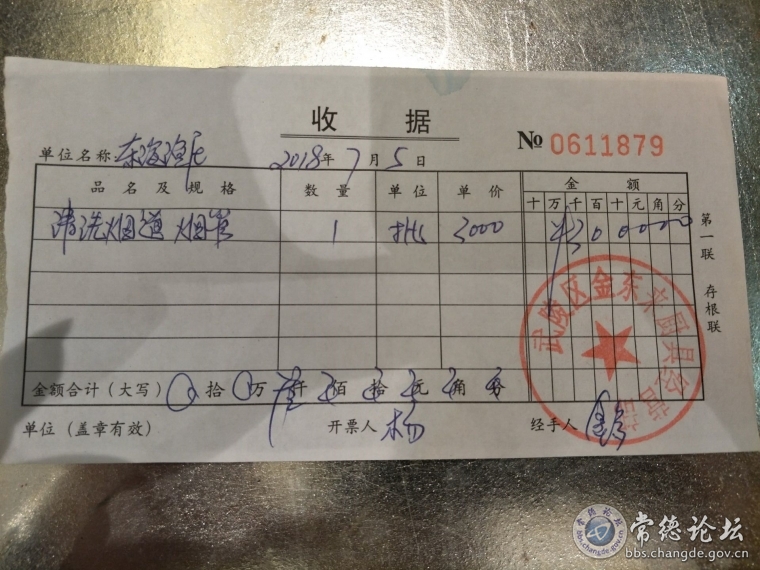 收 据
№ 0611879
单位名称: 2018年7月5日
品名及规格 数量 单位 单价 金额
十万千百十元角分
清洗烟道 烟罩 1 批 3000
第一联 存根联
武陵区金东来厨具经营部
金额合计(大写) 0拾0万 仟 百 拾 元 角 分
单位(盖章有效) 开票人 杨 经手人
常德论坛
bbs.changde.gov.cn